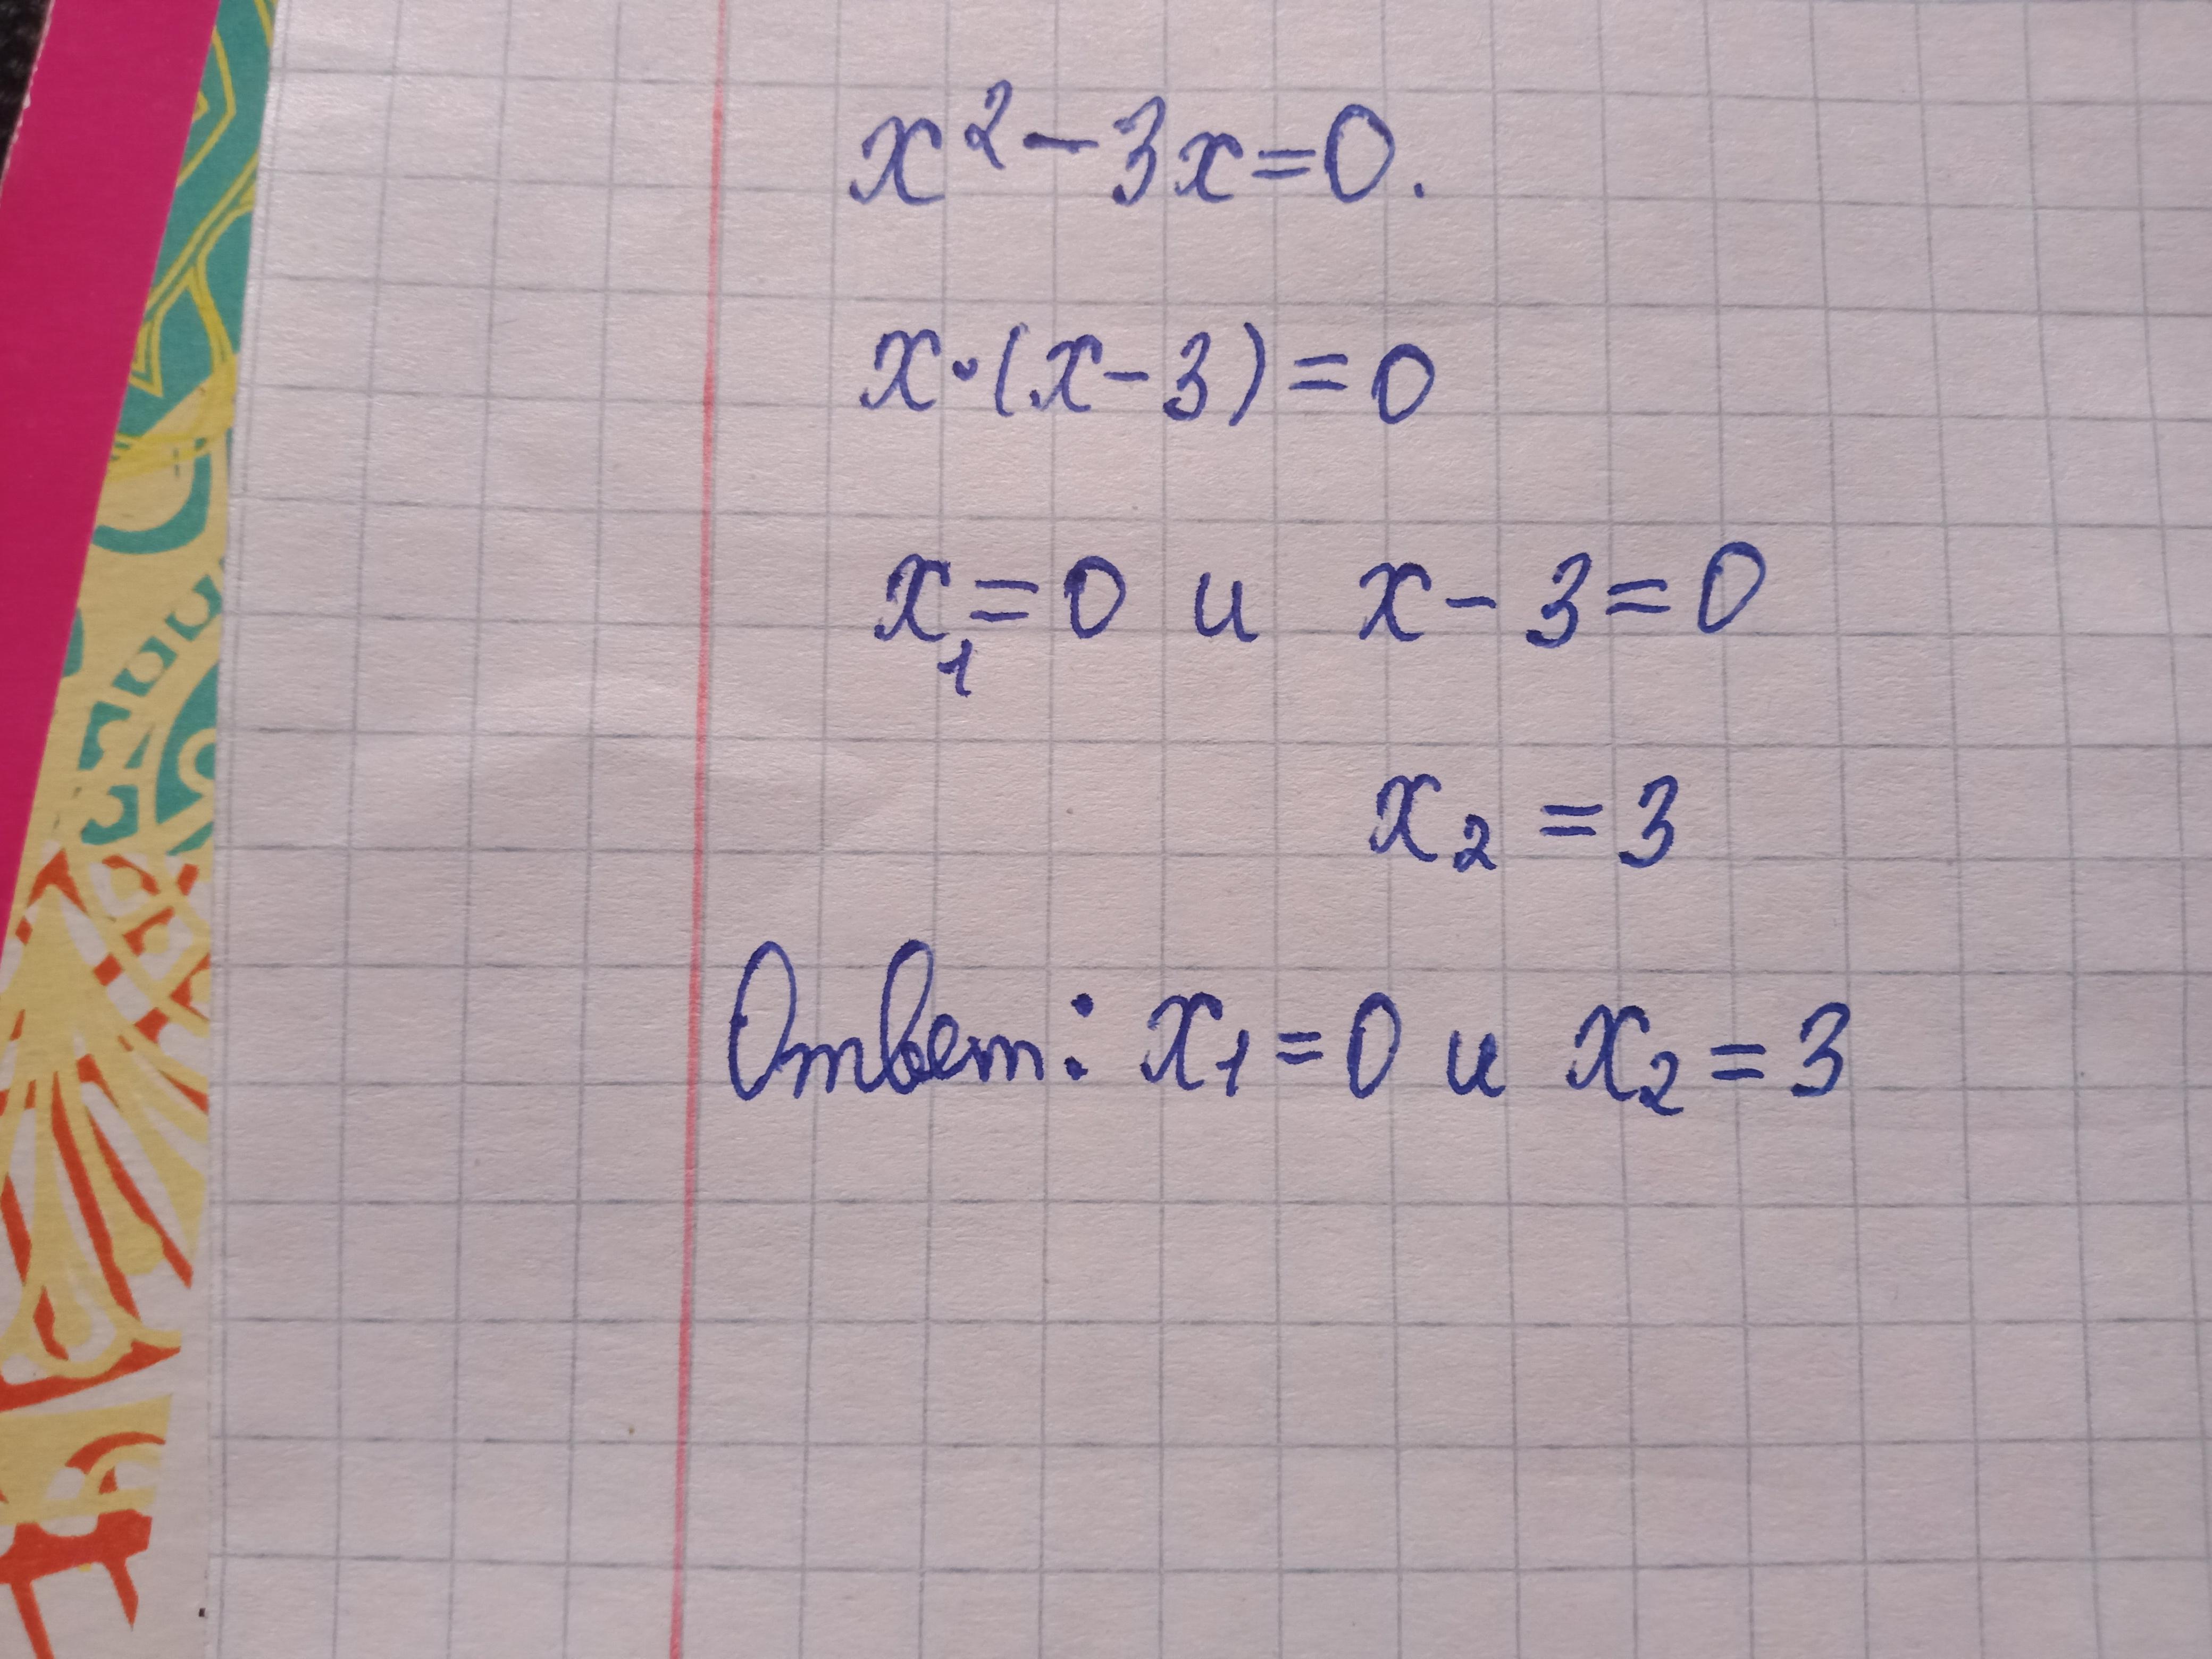 x² - 3x = 0.
x·(x - 3) = 0
x₁ = 0 и x - 3 = 0
x₂ = 3
Ответ: x₁ = 0 и x₂ = 3